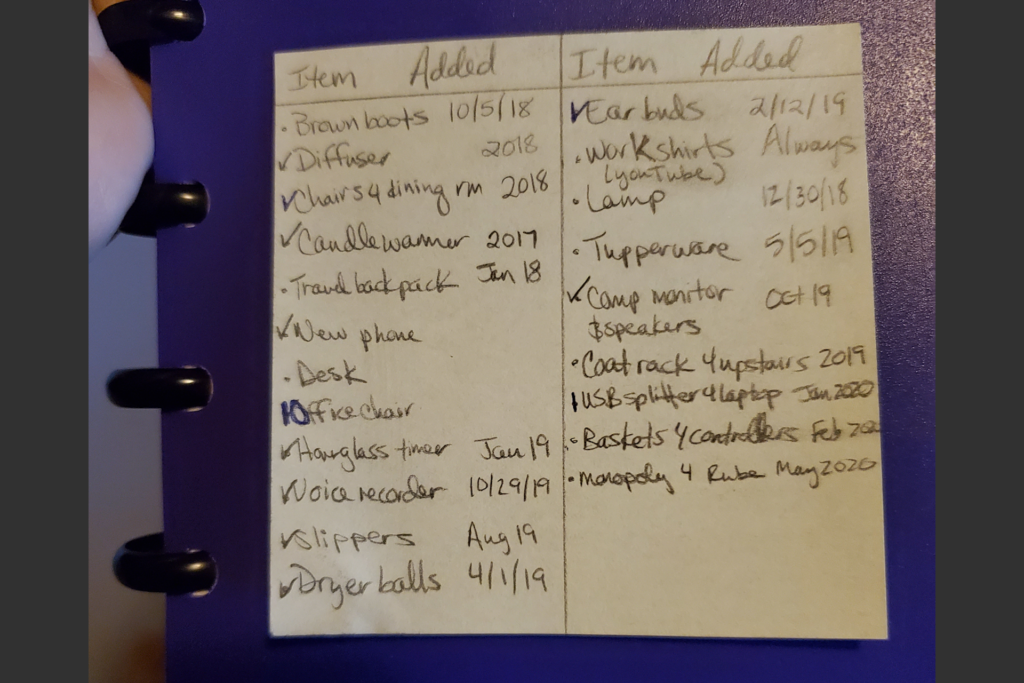 Item Added
· Brown boots 10/5/18
✓ Diffuser 2018
✓ Chairs 4 dining rm 2018
✓ Candle warmer 2017
· Travel backpack Jan 18
✓ New phone
· Desk
✓ Office chair
✓ Hourglass timer Jan 19
✓ Voice recorder 10/29/19
✓ Slippers Aug 19
✓ Dryer balls 4/1/19
Item Added
✓ Earbuds 2/12/19
· Work shirts Always
(youTube)
· Lamp 12/30/18
· Tupperware 5/5/19
✓ Comp monitor Oct 19
$speakers
· Coat rack 4 upstairs 2019
USB splitter 4 laptop Jan 2020
· Baskets 4 controllers Feb
· monopoly 4 Rube May 2020